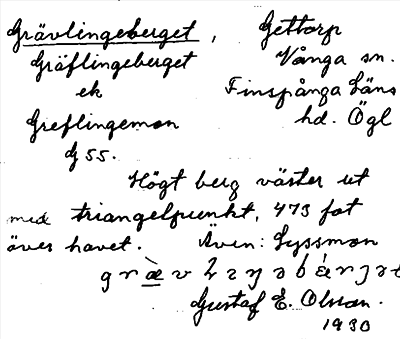 Grävlingeberget, Gettorp
Gräflingeberget Vånga sn.
ek Finspånga Läns
Greflingemon hd. Ögl
G 55.
Högt berg väster ut
med triangelpunkt, 473 fot
över havet. Även: Lyssmon
Gustaf E. Olsson.
1930